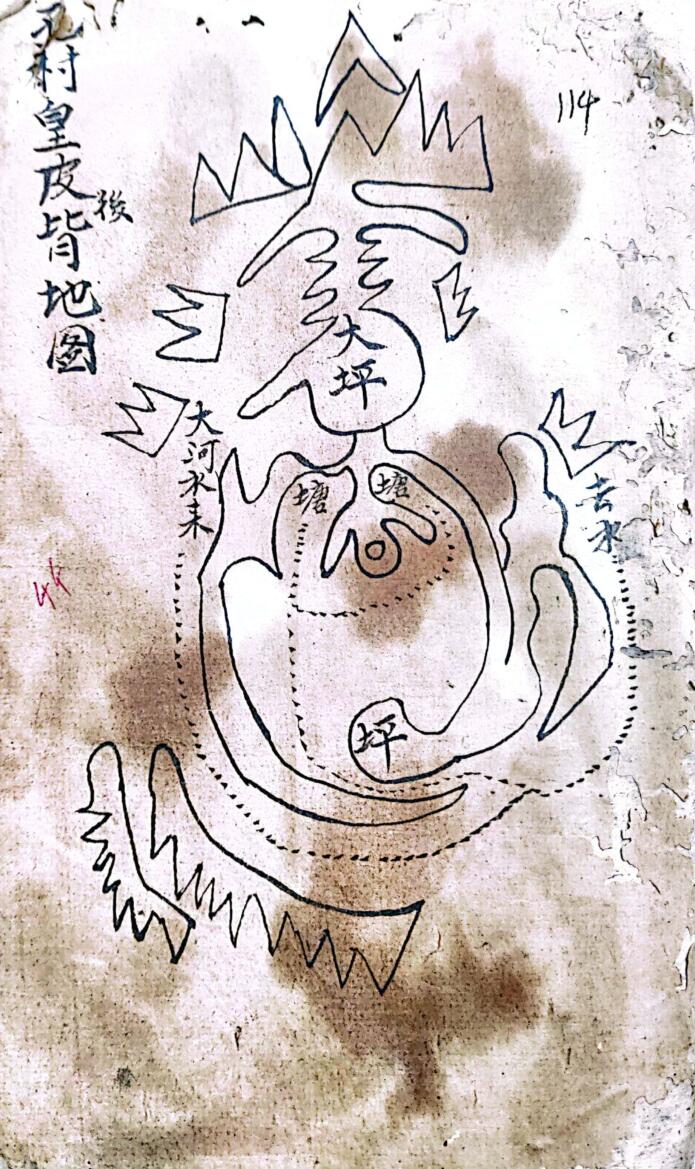 孔村皇皮背地图
後
114
大坪
大河水来
塘
塘
去水
坪
44